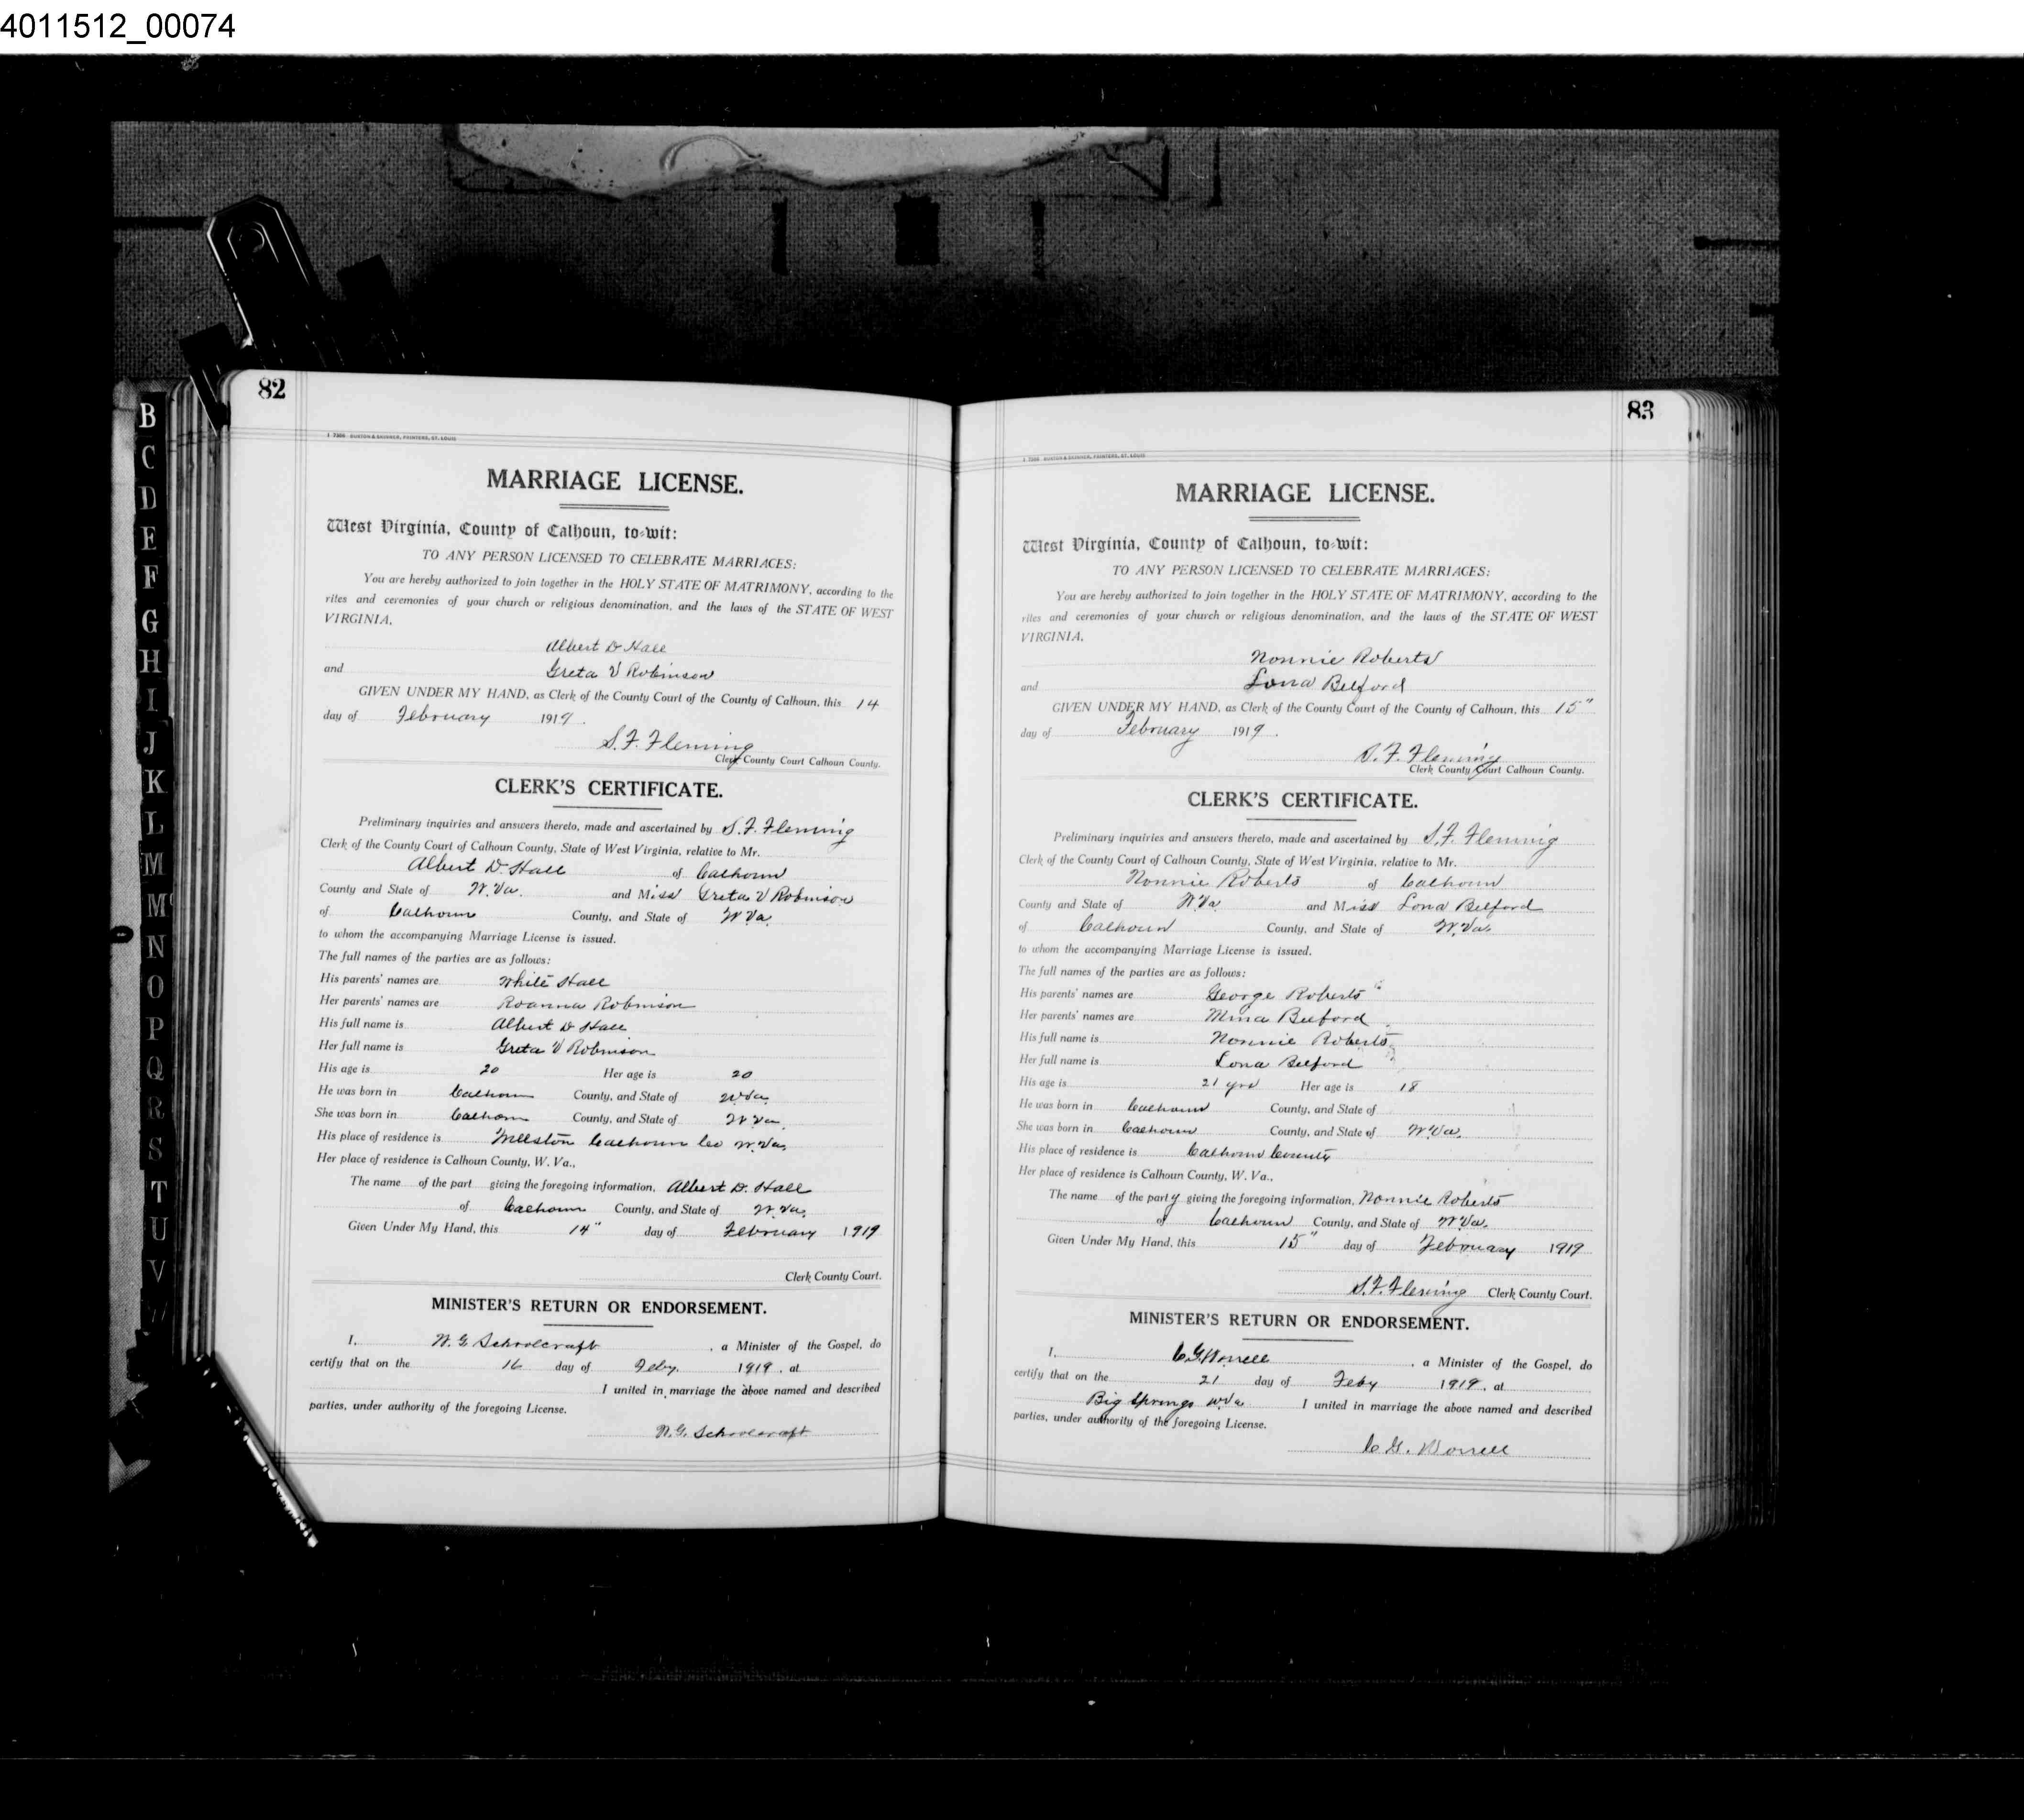 4011512_00074
82
I 7266 BUXTON & SKINNER, PRINTERS, ST. LOUIS
MARRIAGE LICENSE.
West Virginia, County of Calhoun, to-wit:
TO ANY PERSON LICENSED TO CELEBRATE MARRIAGES:
You are hereby authorized to join together in the HOLY STATE OF MATRIMONY, according to the
rites and ceremonies of your church or religious denomination, and the laws of the STATE OF WEST
VIRGINIA,
Albert D Hall
and Greta V Robinson
GIVEN UNDER MY HAND, as Clerk of the County Court of the County of Calhoun, this 14
day of February 1919.
S. F. Fleming
Clerk County Court Calhoun County.
CLERK'S CERTIFICATE.
Preliminary inquiries and answers thereto, made and ascertained by S. F. Fleming
Clerk of the County Court of Calhoun County, State of West Virginia, relative to Mr.
Albert D. Hall of Calhoun
County and State of W. Va. and Miss Greta V Robinson
of Calhoun County, and State of W Va.
to whom the accompanying Marriage License is issued.
The full names of the parties are as follows:
His parents' names are White Hall
Her parents' names are Roanna Robinson
His full name is Albert D Hall
Her full name is Greta V Robinson
His age is 20 Her age is 20
He was born in Calhoun County, and State of W Va.
She was born in Calhoun County, and State of W Va.
His place of residence is Millston Calhoun Co W. Va.
Her place of residence is Calhoun County, W. Va.,
The name of the part giving the foregoing information, Albert D. Hall
of Calhoun County, and State of W. Va.
Given Under My Hand, this 14" day of February 1919
Clerk County Court.
MINISTER'S RETURN OR ENDORSEMENT.
I, N. G. Schoolcraft, a Minister of the Gospel, do
certify that on the 16 day of Feby. 1919, at
I united in marriage the above named and described
parties, under authority of the foregoing License.
N. G. Schoolcraft
83
I 7266 BUXTON & SKINNER, PRINTERS, ST. LOUIS
MARRIAGE LICENSE.
West Virginia, County of Calhoun, to-wit:
TO ANY PERSON LICENSED TO CELEBRATE MARRIAGES:
You are hereby authorized to join together in the HOLY STATE OF MATRIMONY, according to the
rites and ceremonies of your church or religious denomination, and the laws of the STATE OF WEST
VIRGINIA,
Nonnie Roberts
and Lona Belford
GIVEN UNDER MY HAND, as Clerk of the County Court of the County of Calhoun, this 15"
day of February 1919.
S. F. Fleming
Clerk County Court Calhoun County.
CLERK'S CERTIFICATE.
Preliminary inquiries and answers thereto, made and ascertained by S. F. Fleming
Clerk of the County Court of Calhoun County, State of West Virginia, relative to Mr.
Nonnie Roberts of Calhoun
County and State of W Va and Miss Lona Belford
of Calhoun County, and State of W. Va.
to whom the accompanying Marriage License is issued.
The full names of the parties are as follows:
His parents' names are George Roberts
Her parents' names are Mina Belford
His full name is Nonnie Roberts
Her full name is Lona Belford
His age is 21 yrs Her age is 18
He was born in Calhoun County, and State of
She was born in Calhoun County, and State of W. Va.
His place of residence is Calhoun County
Her place of residence is Calhoun County, W. Va.,
The name of the party giving the foregoing information, Nonnie Roberts
of Calhoun County, and State of W Va.
Given Under My Hand, this 15" day of February 1919
S. F. Fleming Clerk County Court.
MINISTER'S RETURN OR ENDORSEMENT.
I, C. G. Worrell, a Minister of the Gospel, do
certify that on the 21 day of Feby 1919, at
Big Springs W Va I united in marriage the above named and described
parties, under authority of the foregoing License.
C. G. Worrell
B
C
D
E
F
G
H
I
J
K
L
M
Mc
N
O
P
Q
R
S
T
U
V
W